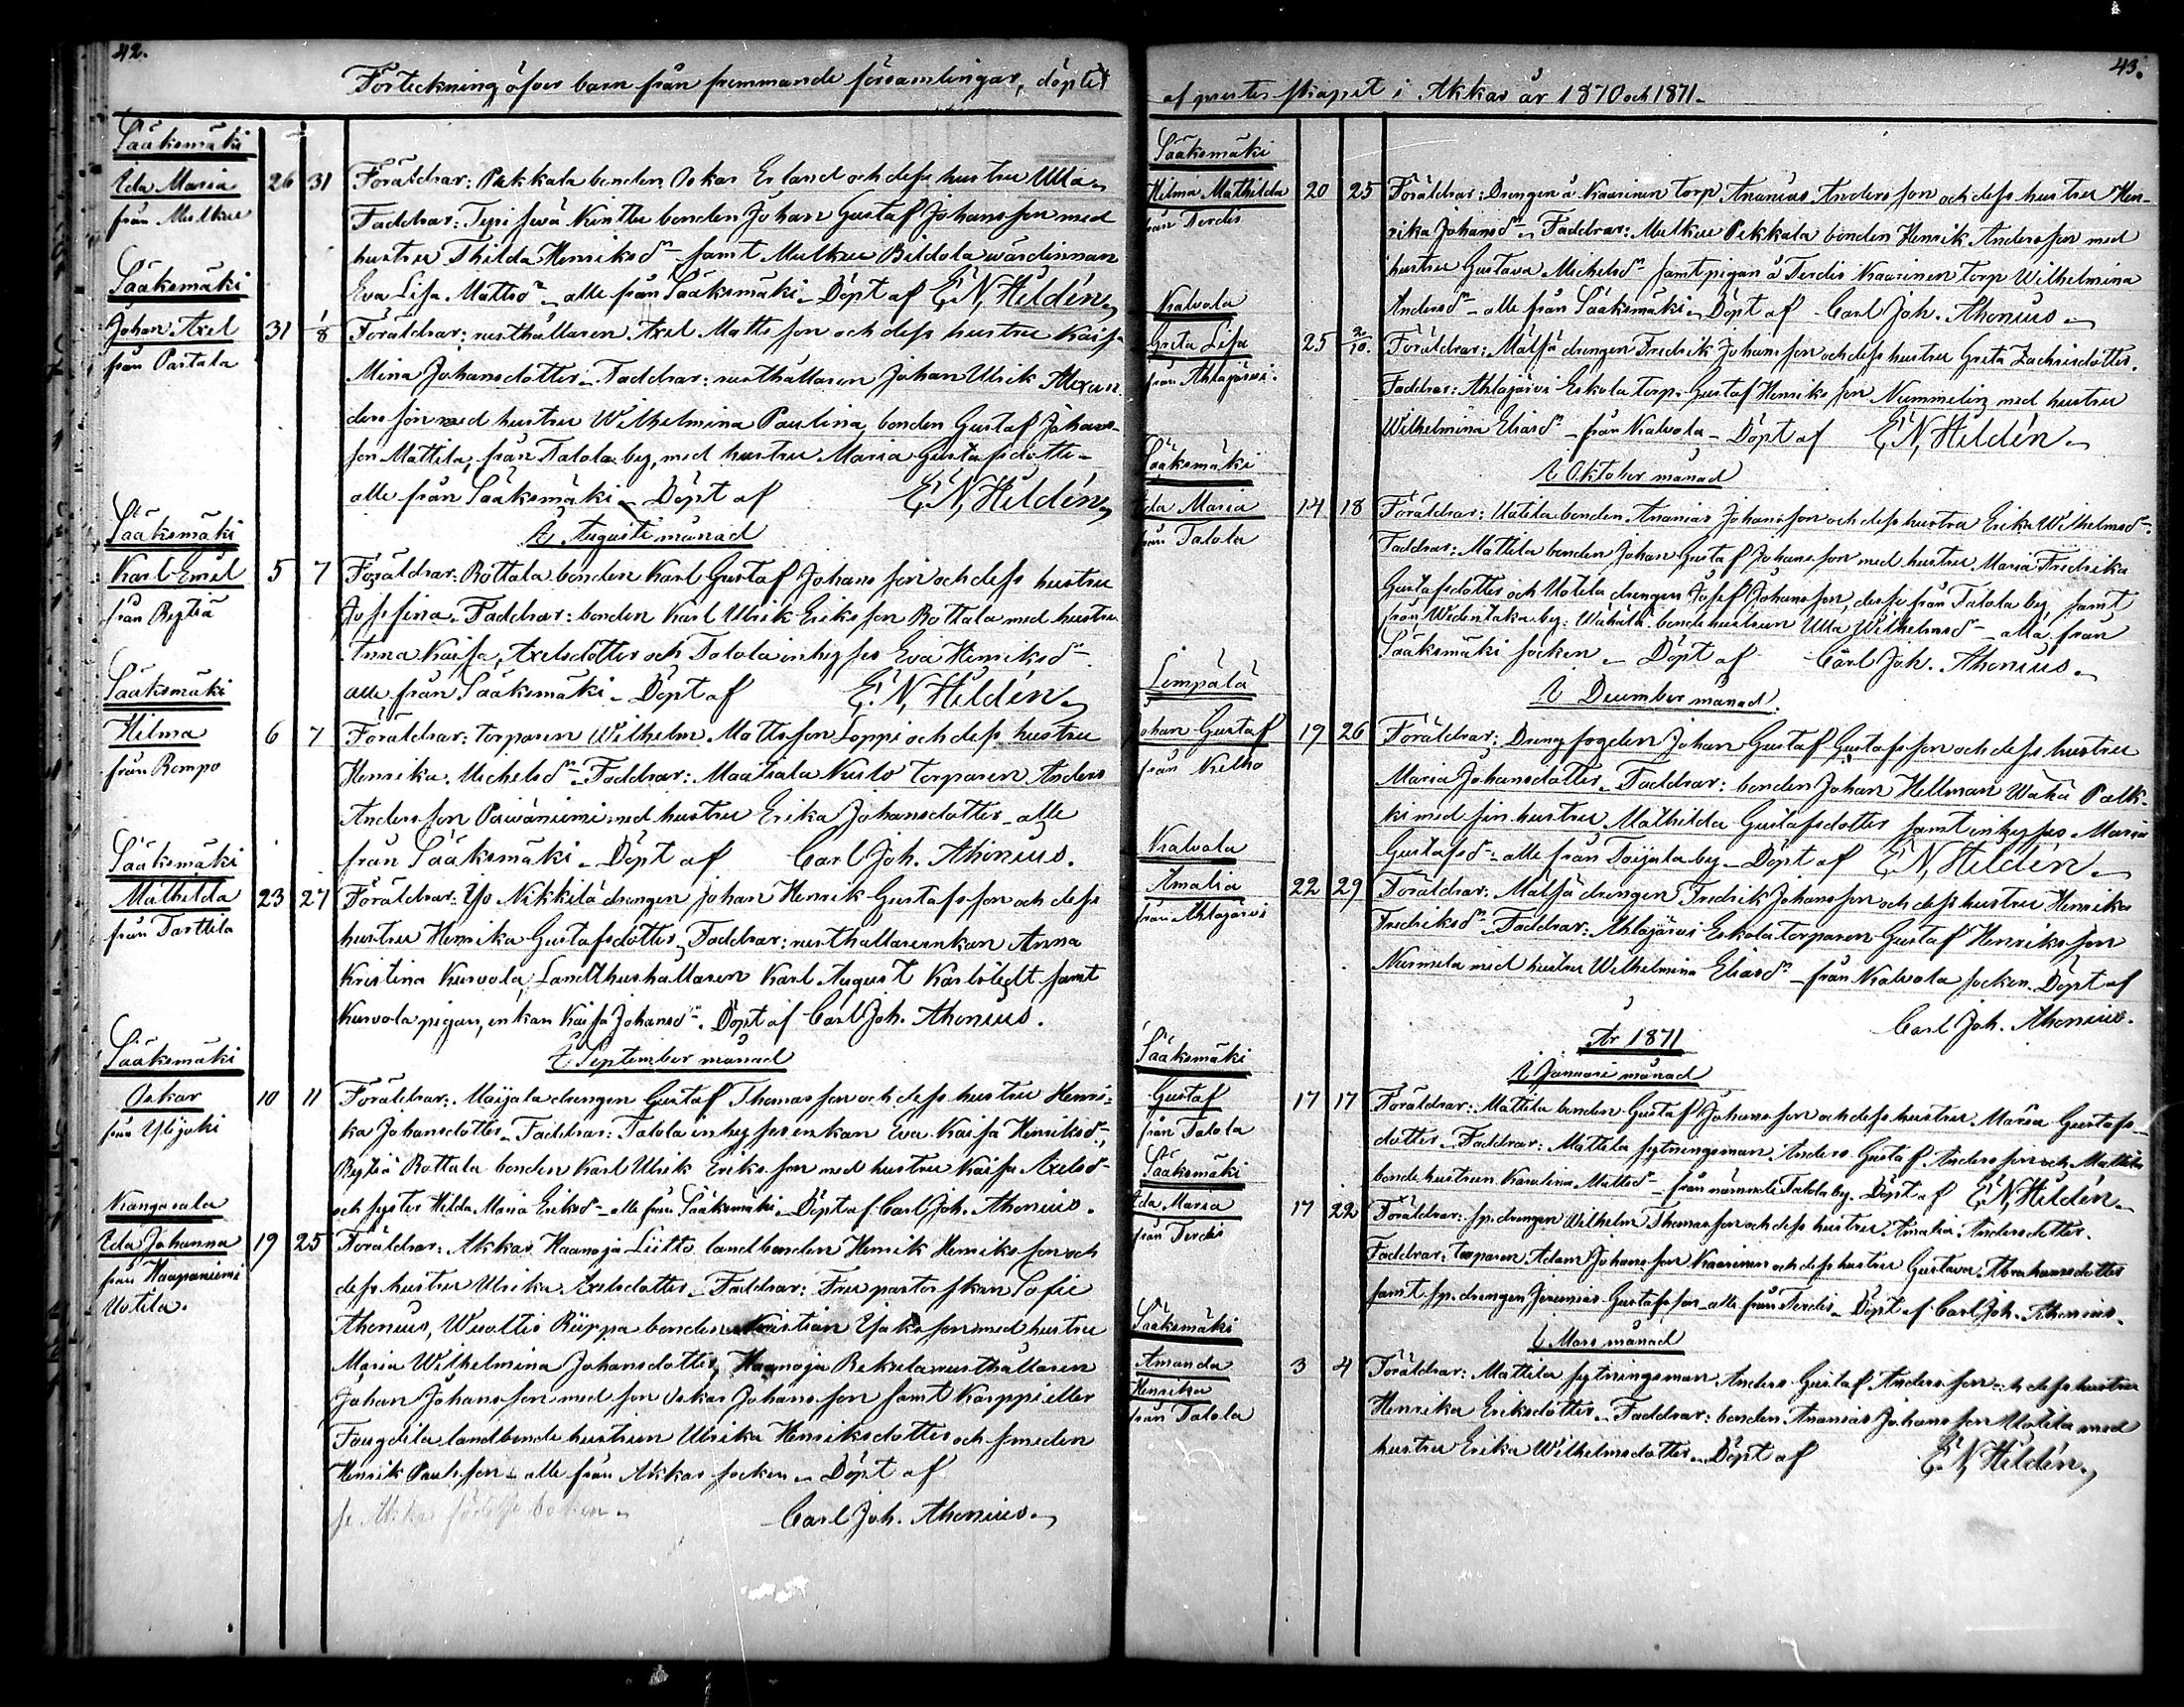 42.
Förteckning öfver barn från fremmande församlingar, döpte
Sääksmäki
Ida Maria 26 31 Föräldrar: Pekkala bonden Oskar Erland och dess hustru Ulla
från Mulkue Faddrar: bonden Johan Gustaf Johansson med
hustru Thilda Henriksdr samt Mulkue värdinnan
Sääksmäki
Eva Lisa Mattsdr alle från Sääksmäki Döpt af E. N. Heldén
Johan Axel 31 1/8 Föräldrar: rusthållaren Axel Mattsson och dess hustru Kaisa
från Partala
Mina Johansdotter. Faddrar: rusthållaren Johan Ulrik Alexan-
dersson med hustru Wilhelmina Paulina, bonden Gustaf Johans-
son Mattila, från Talola by, med hustru Maria Gustafsdotter
alle från Sääksmäki Döpt af E. N. Heldén
I Augusti månad
Sääksmäki
Karl Emil 5 7 Föräldrar: Rottala bonden Karl Gustaf Johansson och dess hustru
från Ryttiä Josefina. Faddrar: bonden Karl Ulrik Eriksson Rottala med hustru
Anna Kaisa, Axelsdotter och Talola inhyses Eva Henriksdr
Sääksmäki
alle från Sääksmäki. Döpt af E. N. Heldén
Hilma 6 7 Föräldrar: torparen Wilhelm Mattsson Loppi och dess hustru
från Rempo Henrika Michelsdr. Faddrar: Maatiala torparen Anders
Andersson Päiväniemi med hustru Erika Johansdotter alle
Sääksmäki
från Sääksmäki. Döpt af Carl Joh. Ahonius.
Mathilda 23 27 Föräldrar: Yjo Nikkilä drengen Johan Henrik Gustafsson och dess
från Tarttila hustru Henrika Gustafsdotter. Faddrar: rusthållareenkan Anna
Kristina Kurvola, Landthushållaren Karl August Karlstedt samt
Kurvola pigan, enkan Kaisa Johansdr. Döpt af Carl Joh. Ahonius.
I September månad
Sääksmäki
Oskar 10 11 Föräldrar: Maijala drengen Gustaf Thomasson och dess hustru Henri-
från Ylijoki ka Johansdotter. Faddrar: Talola inhyses enkan Eva Kaisa Henriksdr,
Ryttiä Rottala bonden Karl Ulrik Eriksson med hustru Kaisa Axelsdr
och syster Hilda Maria Eriksdr alle från Sääksmäki. Döpt af Carl Joh. Ahonius.
Kangasala
Ida Johanna 19 25 Föräldrar: Akkas, Haanoja Liitto landbonden Henrik Henriksson och
från Haapaniemi
Uotila.
dess hustru Ulrika Axelsdotter. Faddrar: Fru pastorskan Sofie
Ahonius, Wuoltis Riippa bonden Kristian Isaksson med hustru
Maria Wilhelmina Johansdotter, Haanoja Rekola rusthållaren
Johan Johansson med son Oskar Johansson samt Karppi eller
Fougdila landbonde hustrun Ulrika Henriksdotter och smeden
Henrik Paulsson alle från Akkas socken. Döpt af
se Akkas födelse boken.
Carl Joh. Ahonius.
43.
af presterskapet i Akkas år 1870 och 1871.
Sääksmäki
Hilma Mathilda 20 25 Föräldrar: Drengen å Kaarinen torp Ananias Andersson och dess hustru Hen-
från Terdis
rika Johansdr. Faddrar: Mulkue Pekkala bonden Henrik Andersson med
hustru Gustava Michelsdr samt pigan å Terdis Kaarinen torp Wilhelmina
Andersdr alle från Sääksmäki. Döpt af Carl Joh. Ahonius.
Kalvola
Greta Lisa 25 2/10. Föräldrar: Mälsä drengen Fredrik Johansson och dess hustru Greta Zachrisdotter.
från Ahlajärvi.
Faddrar: Ahlajärvi Eskola torp. Gustaf Henriksson Nummelin med hustru
Wilhelmina Eliasdr från Kalvola. Döpt af E. N. Heldén
I Oktober månad
Sääksmäki
Ida Maria 14 18 Föräldrar: Uotila bonden Ananias Johansson och dess hustru Erika Wilhelmsdr.
från Talola
Faddrar: Mattila bonden Johan Gustaf Johansson med hustru Maria Fredrika
Gustafsdotter och Uotila drengen Josef Johansson, desse från Talola by, samt
från Wedentaka by: bondehustrun Ulla Wilhelmsdr alla från
Sääksmäki socken. Döpt af Carl Joh. Ahonius.
I December månad.
Lempälä
Johan Gustaf 19 26 Föräldrar: Drengfogden Johan Gustaf Gustafsson och dess hustru
från Kelho
Maria Johansdotter. Faddrar: bonden Johan Hellman Waha Palk-
ki med sin hustru Mathilda Gustafsdotter samt inhyses Maria
Gustafsdr alle från Toijala by. Döpt af E. N. Heldén
Kalvola
Amalia 22 29 Föräldrar: Mälsä drengen Fredrik Johansson och dess hustru Henrika
från Ahlajärvi
Fredriksdr. Faddrar: Ahlajärvi Eskola torparen Gustaf Henriksson
Nurmela med hustru Wilhelmina Eliasdr från Kalvola socken. Döpt af
Carl Joh. Ahonius.
År 1871
I Januari månad
Sääksmäki
Gustaf 17 17 Föräldrar: Mattila bonden Gustaf Johansson och dess hustru Maria Gustafs-
från Talola
dotter. Faddrar: Mattila sytningsman Anders Gustaf Andersson och Mattila
bonde hustrun Karolina Mattsdr från nämnde Talola by. Döpt af E. N. Heldén
Sääksmäki
Ida Maria 17 22 Föräldrar: sp. drengen Wilhelm Thomasson och dess hustru Amalia Andersdotter.
från Terdis
Faddrar: torparen Adam Johansson Kaarinen och dess hustru Gustava Abrahamsdotter
samt sp. drengen Jeremias Gustafsson alle från Terdis. Döpt af Carl Joh. Ahonius.
I Mars månad
Sääksmäki
Amanda 3 4 Föräldrar: Mattila sytningsman Anders Gustaf Andersson och dess hustru
Henrika
från Talola
Henrika Eriksdotter. Faddrar: bonden Ananias Johansson Uotila med
hustru Erika Wilhelmsdotter. Döpt af E. N. Heldén